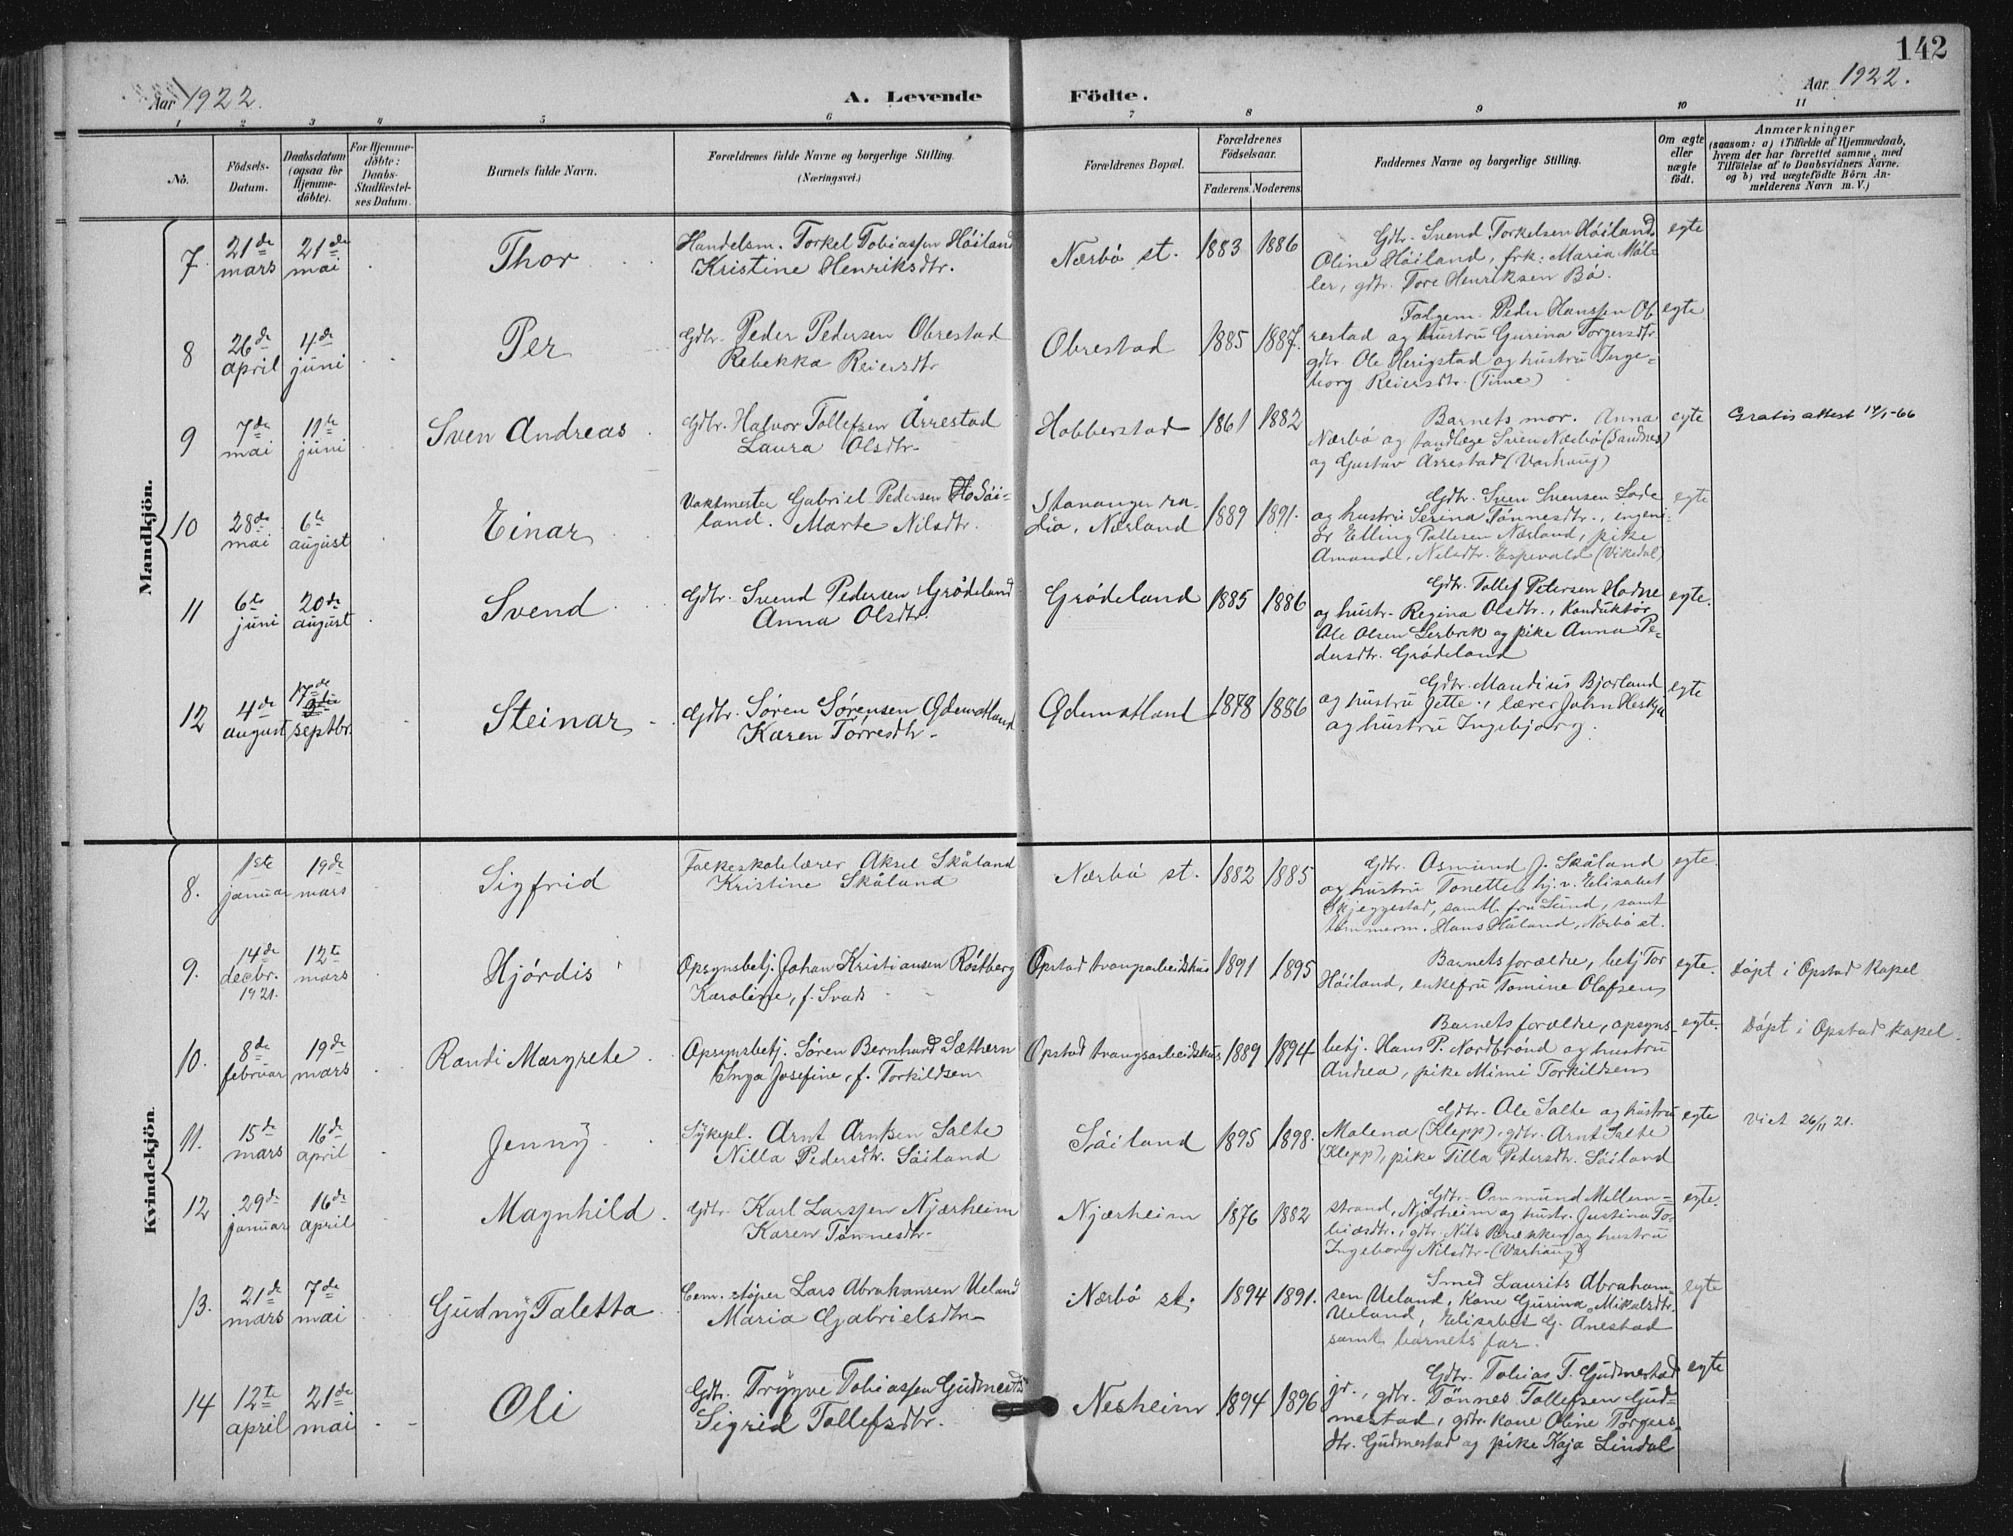 142
Aar 1922.
A. Levende
Födte.
Aar 1922.
1 2 3 4 5 6 7 8 9 10 11
No.
Födsels-Datum.
Daabsdatum (ogsaa for Hjemme-döbte).
For Hjemme-döbte: Daabs-Stadfæstel-ses Datum.
Barnets fulde Navn.
Forældrenes fulde Navne og borgerlige Stilling. (Næringsvei.)
Forældrenes Bopæl.
Forældrenes Födselsaar.
Faderens. Moderens.
Faddernes Navne og borgerlige Stilling.
Om ægte eller uægte födt.
Anmærkninger
(saasom: a) i Tilfælde af Hjemmedaab, hvem der har forrettet samme, med Tilföielse af to Daabsvidners Navne, og b) ved uægtefödte Börn An-melderens Navn m. V.)
Mandkjön.
7 21de mars 21de mai Thor
Handelsm. Torkel Tobiassen Höiland
Kristine Henriksdtr.
Nærbö st. 1883 1886
Gdbr. Svend Torkelsen Höiland,
Oline Höiland, frk. Maria Möl-
ler, gdbr. Tore Henriksen Bö.
egte
8 26de april 4de juni Per
Gdbr. Peder Pedersen Obrestad
Rebekka Reiersdtr.
Obrestad 1885 1887.
Peder Hanssen Ob
restad og hustru Gurina Torgersdtr
gdbr Ole Herigstad og hustru Inge-
borg Reiersdtr. (Time)
egte
9 7de mai 11te juni Sven Andreas
Gdbr. Halvor Tollefsen Årrestad
Laura Olsdtr.
Hobberstad 1861 1882
Barnets mor. Anna
Nærbö og tandlæge Sven Nærbö (Sandnes)
og Gustav Årrestad (Varhaug)
egte
Gratis attest 14/1-66
10 28de mai 6te august Einar
Vaktmester Gabriel Pedersen Höi-
land. Marte Nilsdtr.
Stavanger ra-
dio, Nærland 1889 1891.
Gdbr. Sven Svensen Lode
og hustru Serina Tönnesdtr., ingeni-
ör Elling Pallesen Nærland, pike
Amanda Nilsdtr. Espevold (Vikedal)
egte
11 6te juni 20de august Svend
Gdbr. Svend Pedersen Grödeland
Anna Olsdtr.
Grödeland 1885 1886
Gdbr. Tollef Petersen Hadne
og hustr. Regina Olsdtr., Konduktör
Ole Olsen Serbrek og pike Anna Pe-
dersdtr. Grödeland
egte.
12 4de august 17de septbr. Steinar
Gdbr. Sören Sörensen Odemotland
Karen Torresdtr.
Odemotland 1878 1886
Gdbr. Mandius Bjorland
og hustru Jette., lærer John Heskja
og hustru Ingebjorg.
egte
Kvindekjön.
8. 1ste januar 19de mars Sigfrid
Folkeskolelærer Aksel Skåland
Kristine Skåland
Nærbö st. 1882 1885
Gdbr. Osmund J. Skåland
og hustru Tonette, hj. v. Elisabet
Skjeggestad, samtl. fru Lund, samt
tömmerm. Hans Håland, Nærbö st.
egte
9. 14de decbr. 1921. 12te mars Hjördis
Opsynsbetj. Johan Kristiansen Röstberg
Karoline, f. Svads
Opstad tvangsarbeidshus 1891 1895
Barnets forældre, betj Tor
Höiland, enkefru Tomine Olafsen
egte.
Döpt i Opstad kapel
10. 8de februar 19de mars Randi Margrete
Opsynsbetj. Sören Bernhard Sæthern
Inga Josefine, f. Torkildsen
Opstad tvangsarbeidshus 1889 1894
Barnets forældre, opsyns-
betj. Hans P. Nordbrönd og hustru
Andrea, pike Mimi Torkildsen
egte.
Döpt i Opstad kapel.
11. 15de mars 16de april Jenny
Sykepl. Arnt Arntsen Salte
Nilla Pedersdtr. Söiland
Söiland 1895 1898.
Gdbr. Ole Salte og hustru
Malena (Klepp), gdbr. Arnt Salte
(Klepp), pike Tilla Pedersdtr. Söiland
egte
Viet 26/11 21.
12 29de januar 16de april Magnhild
Gdbr. Karl Larssen Njærheim
Karen Tönnesdtr.
Njærheim 1876 1882
Gdbr. Ommund Mellem-
strand, Njærheim og hustr. Justina To-
biasdtr., gdbr. Nils Brekken og hustru
Ingeborg Nilsdtr. (Varhaug)
egte.
13. 21de mars 7de mai Gudny Taletta
Cem. stöper Lars Abrahamsen Ueland
Maria Gabrielsdtr
Nærbö st. 1894 1891.
Smed Laurits Abraham-
sen Ueland, Kone Gurina Mikalsdtr.
Ueland, Elisabet G. Anestad
samt barnets far.
egte
14 12te april 21de mai Oli
Gdbr. Trygve Tobiassen Gudmestad
Sigrid Tollefsdtr.
Nesheim 1894 1896
Gdbr. Tobias T. Gudmestad
jr., gdbr. Tönnes Tollefsen Gud-
mestad, gdbr. kone Oline Torgers-
dtr. Gudmestad og pike Kaja Lindal
egte